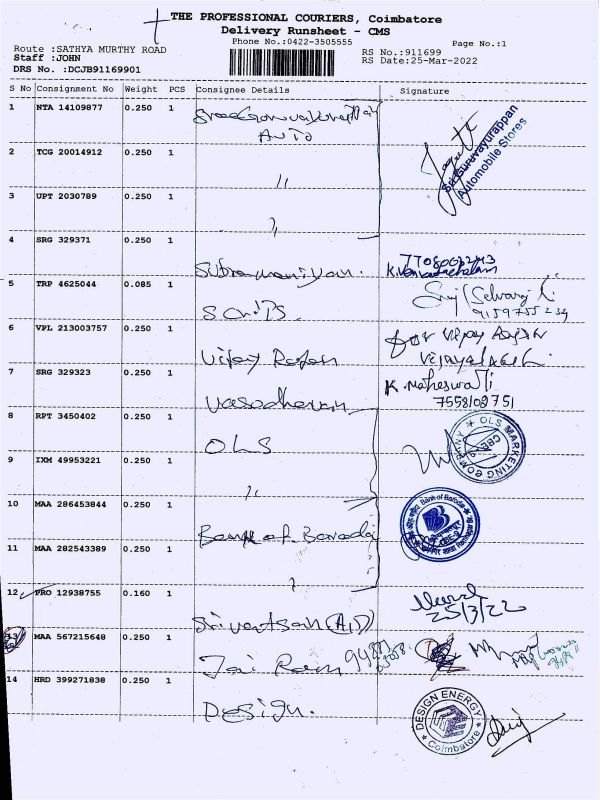 THE PROFESSIONAL COURIERS, Coimbatore
Delivery Runsheet - CMS
Phone No.:0422-3505555
Page No.:1
Route :SATHYA MURTHY ROAD
RS No.:911699
Staff :JOHN
RS Date:25-Mar-2022
DRS No. :DCJB91169901
S No Consignment No Weight PCS Consignee Details Signature
1 NTA 14109877 0.250 1
Auto
Sri Guruvayurappan
Automobile Stores
2 TCG 20014912 0.250 1
"
3 UPT 2030789 0.250 1
"
4 SRG 329371 0.250 1
Subramaniyan.
K.Venkatachalam
5 TRP 4625044 0.085 1
9159755234
6 VPL 213003757 0.250 1
Vijay Rajan
for Vijay
7 SRG 329323 0.250 1
Vasudhevan
K. Maheswari
7558108751
8 RPT 3450402 0.250 1
OLS
OLS MARKETING COMPANY
CBE
9 IXM 49953221 0.250 1
"
10 MAA 286453844 0.250 1
Bank of Baroda
Bank of Baroda
11 MAA 282543389 0.250 1
"
12 PRO 12938755 0.160 1
Srivatsan (AD)
25/3/22
13 MAA 567215648 0.250 1
Jai Ram
14 HRD 399271838 0.250 1
Design.
DESIGN ENERGY
Coimbatore